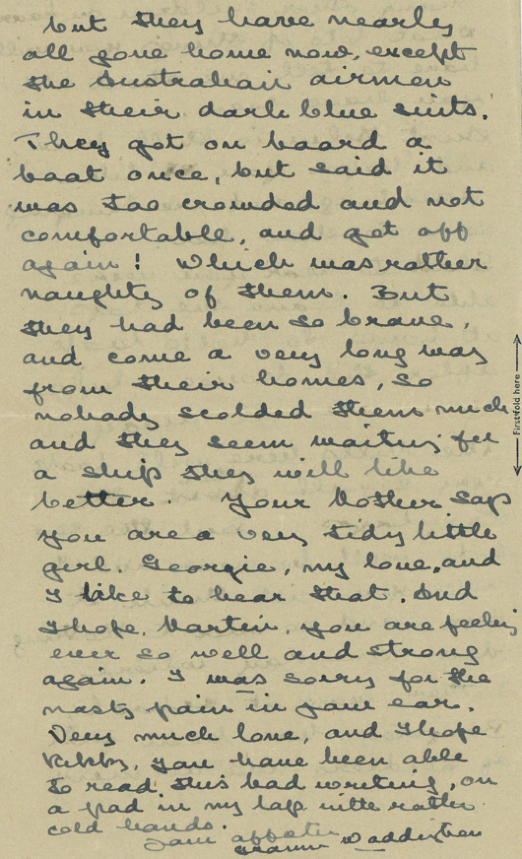 but they have nearly
all gone home now, except
the Australian airmen
in their dark blue suits.
They got on board a
boat once, but said it
was too crowded and not
comfortable, and got off
again! Which was rather
naughty of them. But
they had been so brave,
and come a very long way
from their homes, so
nobody scolded them much
and they seem waiting for
a ship they will like
better. Your Mother says
you are a very tidy little
girl. Georgie, my love, and
I like to hear that. And
I hope, Martin, you are feeling
ever so well and strong
again. I was sorry for the
nasty pain in your ear.
Very much love, and I hope
you have been able
to read this bad writing, on
a pad in my lap with rather
cold hands.
Your
Waddington
First fold here